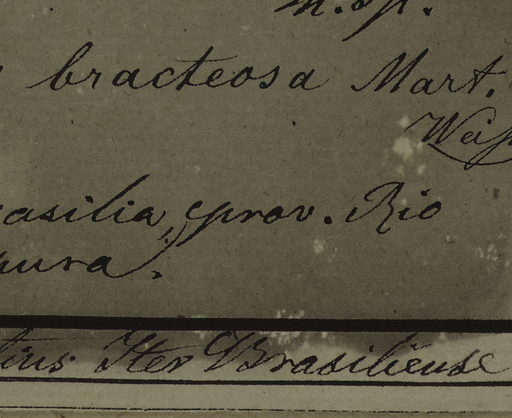 n. sp.
bracteosa Mart.
asilia, prov. Rio
pura.
tius Iter Brasiliense